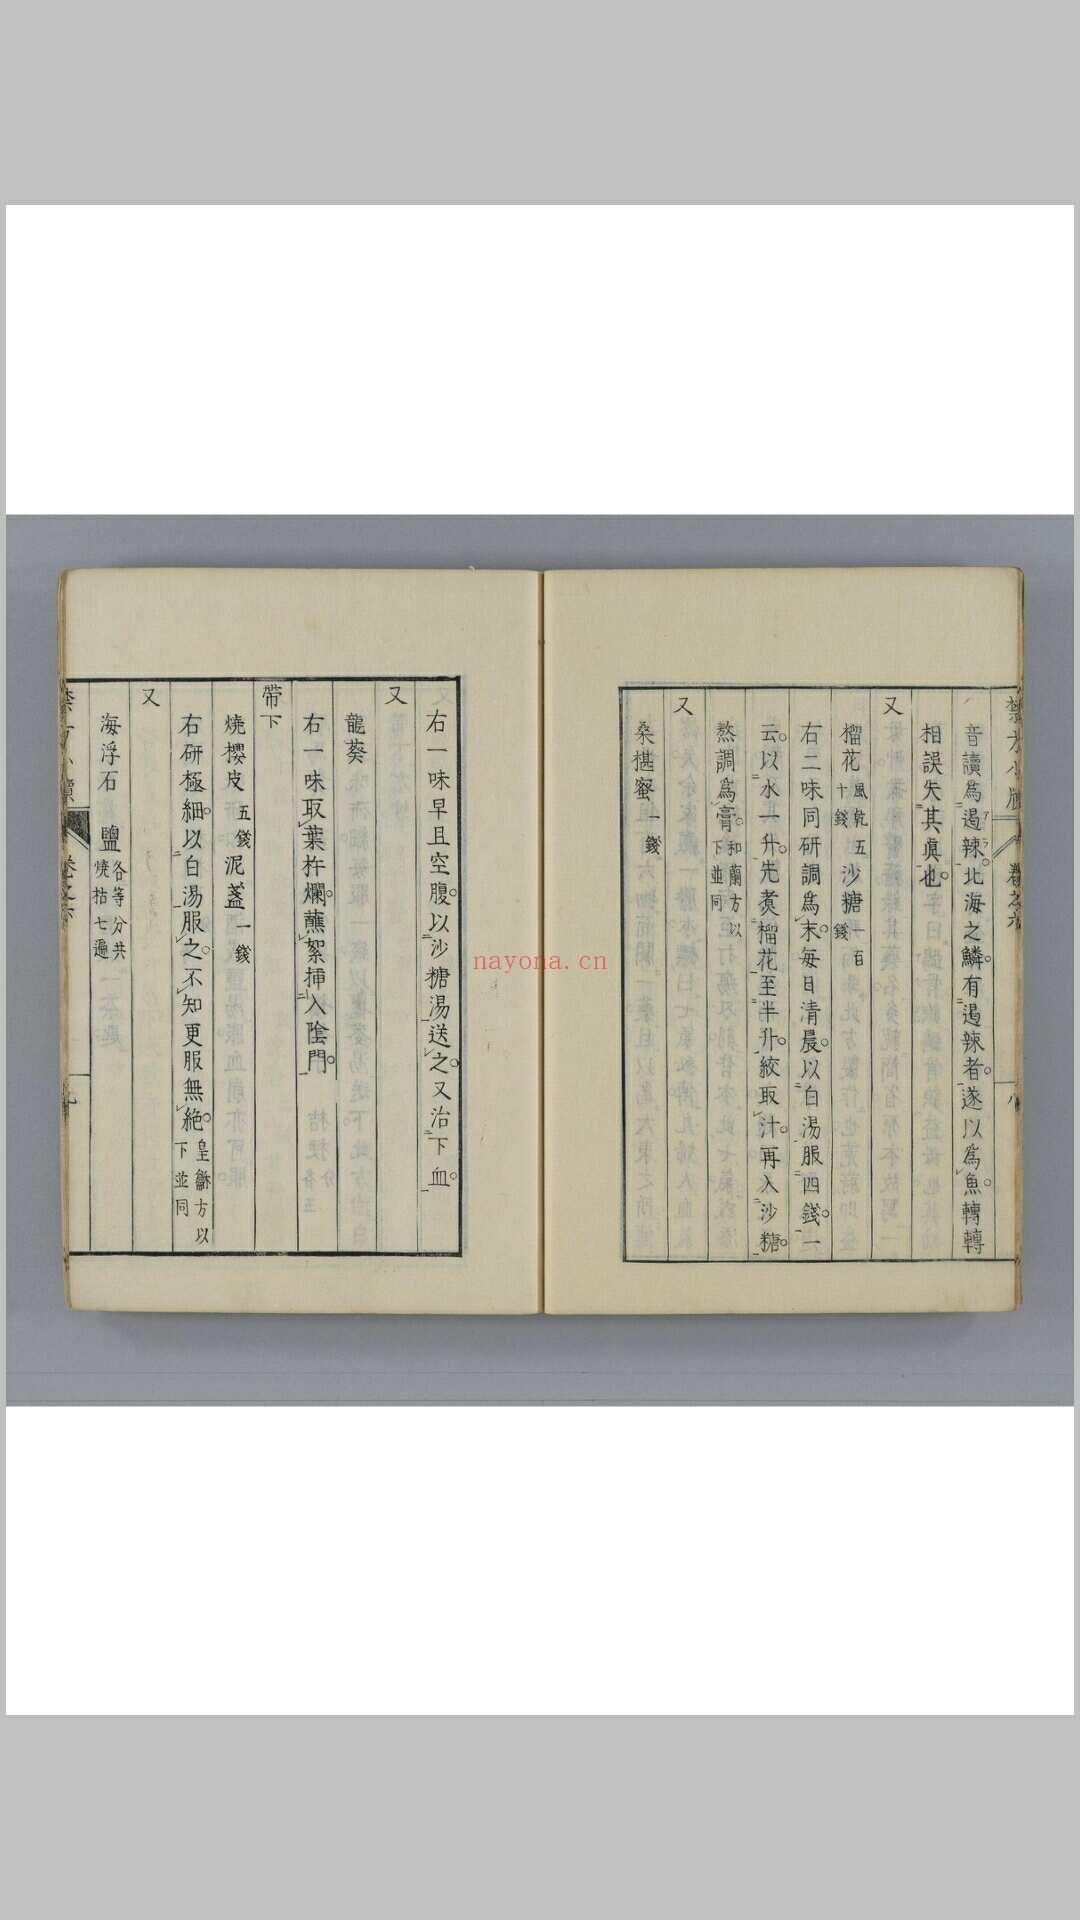 音讀爲遏辣北海之鱗有遏辣者遂以爲魚轉轉
相誤失其眞也
又
榴花風乾五十錢 沙糖一百錢
右二味同研調爲末每日清晨以白湯服四錢一
云以水一升先煑榴花至半升絞取汁再入沙糖
熬調爲膏和蘭方以下並同
又
桑椹蜜一錢
右一味早且空腹以沙糖湯送之又治下血
又
龍葵
右一味取葉杵爛蘸絮揷入陰門
帶下
燒櫻皮五錢 泥盞一錢
右研極細以白湯服之不知更服無絶皇龢方以下並同
又
海浮石 鹽各等分共燒枯七遍
nayona.cn